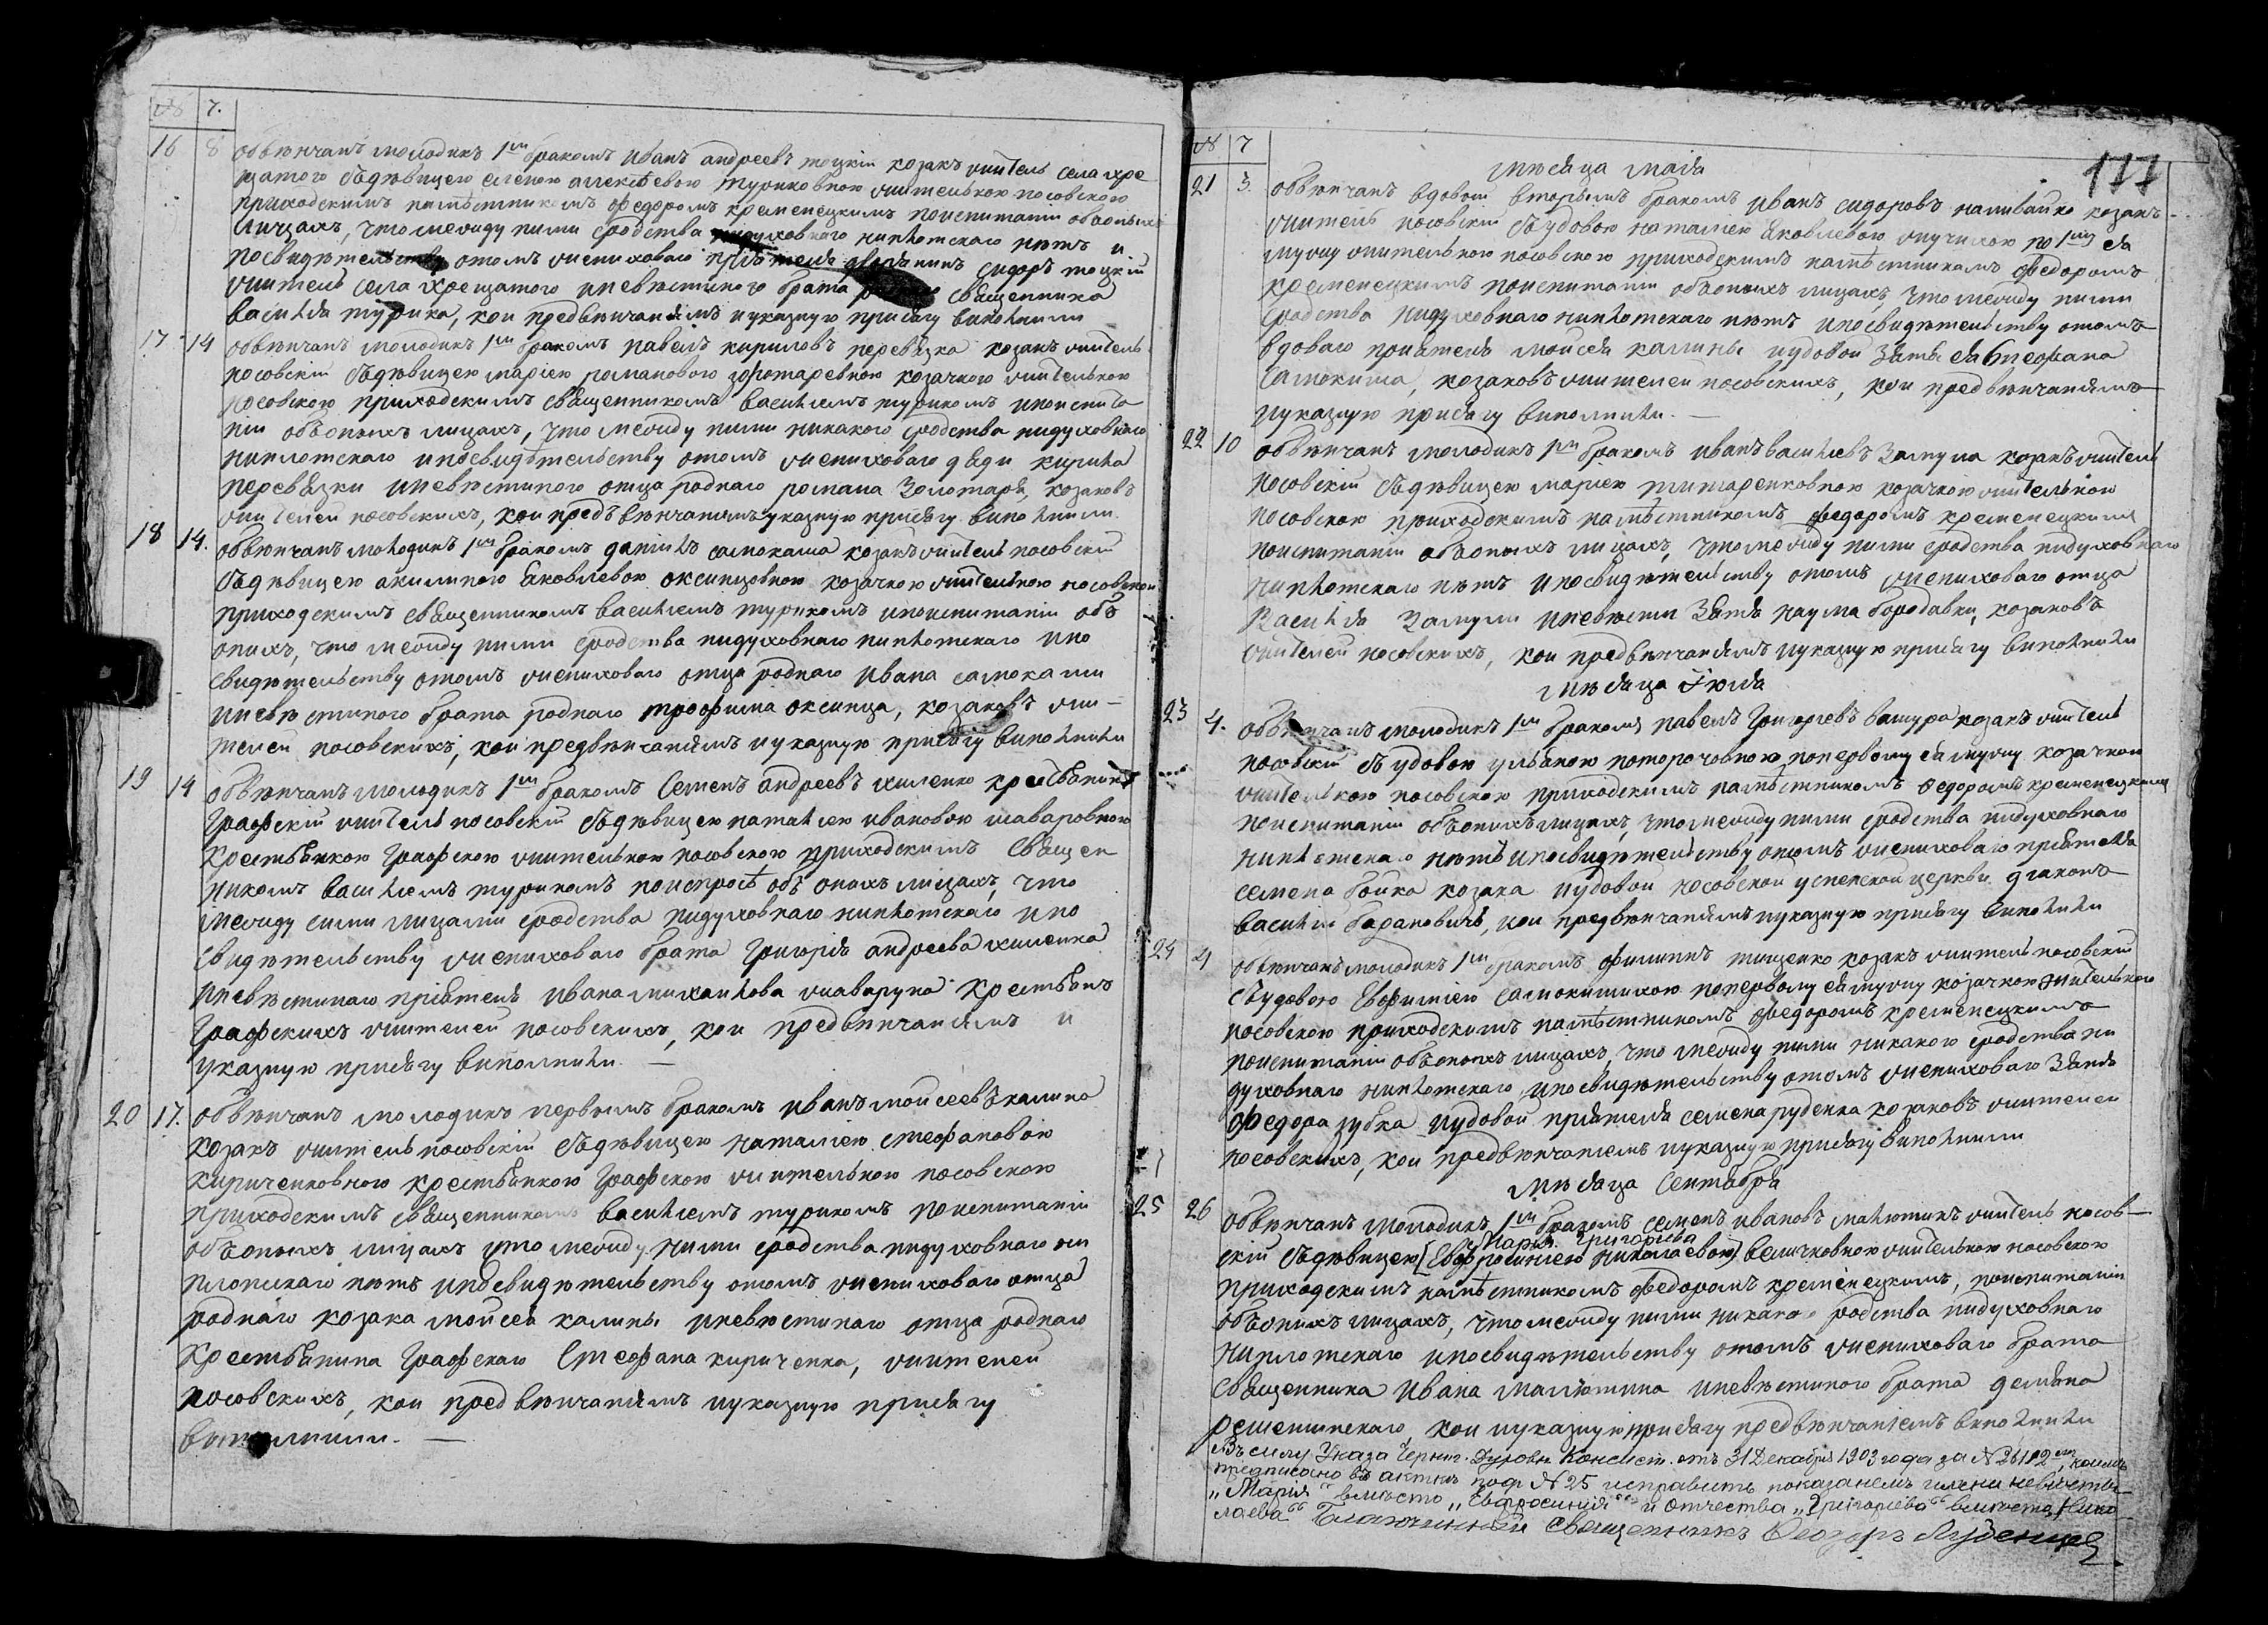 № 7.
16 8 обвѣнчанъ молодикъ 1мъ бракомъ иванъ андреевъ тоцкій козакъ житель села хре
щатого съдѣвицею еленою алексѣевою туриковною жителькою носовскою
приходскимъ намѣстникомъ федоромъ кременецкимъ поиспитаніи обоныхъ
лицахъ, что между ними сродства нидуховнаго ниплотскаго нѣтъ и
посвидѣтельству отомъ жениховаго пріятеля дворянинъ сидоръ тоцкій
житель села хрещатого иневѣстиного брата священника
василія турика, кои предвѣнчаніямъ иуказную присягу виполнили
17 14 обвѣнчанъ молодикъ 1мъ бракомъ павелъ кириловъ перевязка козакъ житель
носовскій съдѣвицею маріею романовою золотаревною козачкою жителькою
носовскою приходскимъ священникомъ василіемъ турикомъ ипоиспита
ніи объоныхъ лицахъ, что между ними никакого сродства нидуховнаго
ниплотскаго ипосвидѣтельству отомъ жениховаго дяди кирила
перевязки иневѣстиного отца роднаго романа золотаря, козаковъ
жителей носовскихъ, кои предъвѣнчаніямъ указную присягу виполнили.
18 14. обвѣнчанъ молодикъ 1мъ бракомъ даніилъ самокаша козакъ житель носовскій
съдѣвицею акилиною яковлевою оксинцовною козачкою жителькою носовскою
приходскимъ священникомъ василіемъ турикомъ ипоиспитаніи объ
оныхъ, что между ними сродства нидуховнаго ниплотскаго ипо
свидѣтельству отомъ жениховаго отца роднаго ивана самокаши
иневѣстиного брата роднаго трофима оксинца, козаковъ жи-
телей носовскихъ, кои предвѣнчаніямъ иуказную присягу виполнили
19 14 обвѣнчанъ молодикъ 1мъ бракомъ семенъ андреевъ хиленко крестьянинъ
графскій житель носовскій съдѣвицею наталіею ивановою шаваровною
крестьянкою графскою жителькою носовскою приходскимъ священ
никомъ василіемъ турикомъ поиспросѣ объ оныхъ лицахъ, что
между сими лицами сродства нидуховнаго ниплотскаго ипо
свидѣтельству жениховаго брата григорія андреева хиленка
иневѣстинаго пріятеля ивана михаилова крестьянъ
графскихъ жителей носовскихъ, кои предвѣнчаніямъ и
указную присягу виполнили. —
20 17. обвѣнчанъ молодикъ первымъ бракомъ иванъ моисеевъ калина
козакъ житель носовскій съдѣвицею наталіею стефановою
кириченковною крестьянкою графскою жителькою носовскою
приходскимъ священникомъ василіемъ турикомъ поиспитаніи
объоныхъ лицахъ что между ними сродства нидуховнаго ни
плотскаго нѣтъ ипосвидѣтельству отомъ жениховаго отца
роднаго козака моисея калины иневѣстинаго отца роднаго
крестьянина графскаго Стефана кириченка, жителей
носовскихъ, кои предвѣнчаніямъ иуказную присягу
виполнили. —
№ 7
177
мѣсяца маія
21 3. обвѣнчанъ вдовій вторымъ бракомъ иванъ сидоровъ наливайко козакъ
житель носовскій съудовою наталіею яковлевою по 1му ея
мужу жителькою носовскою приходскимъ намѣстникомъ федоромъ
кременецкимъ поиспитаніи объоныхъ лицахъ, что между ними
сродства нидуховнаго ниплотскаго нѣтъ ипосвидѣтельству отомъ
вдоваго пріятеля моисея калины иудовой зятя ея стефана
самокиша, козаковъ жителей носовскихъ, кои предвѣнчаніямъ
иуказную присягу виполнили. —
22 10 обвѣнчанъ молодикъ 1мъ бракомъ иванъ василіевъ замула козакъ житель
носовскій съдѣвицею маріею титаренковною козачкою жителькою
носовскою приходскимъ намѣстникомъ федоромъ кременецкимъ
поиспитаніи объоныхъ лицахъ, что между ними сродства нидуховнаго
ниплотскаго нѣтъ ипосвидѣтельству отомъ жениховаго отца
василія замули иневѣсти зятя наума бородавки, козаковъ
жителей носовскихъ, кои предвѣнчаніямъ иуказную присягу виполнили
мѣсяца іюля
23 4. обвѣнчанъ молодикъ 1мъ бракомъ павелъ григоріевъ вашура козакъ житель
носовскій съудовою уляною поторочовною попервому ея мужу козачкою
жителькою носовскою приходскимъ намѣстникомъ федоромъ кременецкимъ
поиспитаніи объонихъ лицахъ, что между ними сродства нидуховнаго
ниплотскаго нѣтъ ипосвидѣтельству отомъ жениховаго пріятеля
семена бойка козака иудовой носовской успенской церкви діаконъ
василій барановичъ, кои предвѣнчаніямъ иуказную присягу виполнили
24 4 обвѣнчанъ молодикъ 1мъ бракомъ филипъ тищенко козакъ житель носовскій
съудовою Евфиміею самокишихою попервому ея мужу козачкою жителькою
носовскою приходскимъ намѣстникомъ федоромъ кременецкимъ
поиспитаніи объоныхъ лицахъ, что между ними никакого сродства ни
духовнаго ниплотскаго, ипосвидѣтельству отомъ жениховаго зятя
федора зубка иудовой пріятеля семена руденка козаковъ жителей
носовскихъ, кои предвѣнчаніемъ иуказную присягу виполнили
мѣсяца Сентября
25 26 обвѣнчанъ молодикъ 1мъ бракомъ семенъ ивановъ малютинъ житель носов-
Марія Григоріева
скій съдѣвицею [Евфросиніею николаевою] величковною жителькою носовскою
приходскимъ намѣстникомъ федоромъ кременецкимъ, поиспитаніи
объонихъ лицахъ, что между ними никакого родства нидуховнаго
ниплотскаго ипосвидѣтельству отомъ жениховаго брата
священника ивана малютина иневѣстиного брата демяна
решетинскаго, кои иуказную присягу предвѣнчаніемъ виполнили
Въ силу Указа Черниг. Духовн. Консист. отъ 31 Декабря 1903 года за № 26112мъ, коимъ
предписано въ актѣ подъ № 25 исправить показаніемъ имени невѣсты
„Марія" вмѣсто „Евфросинія" и отчества „Григоріева" вмѣсто „Нико
лаева" Благочинный Священникъ Ѳеодоръ